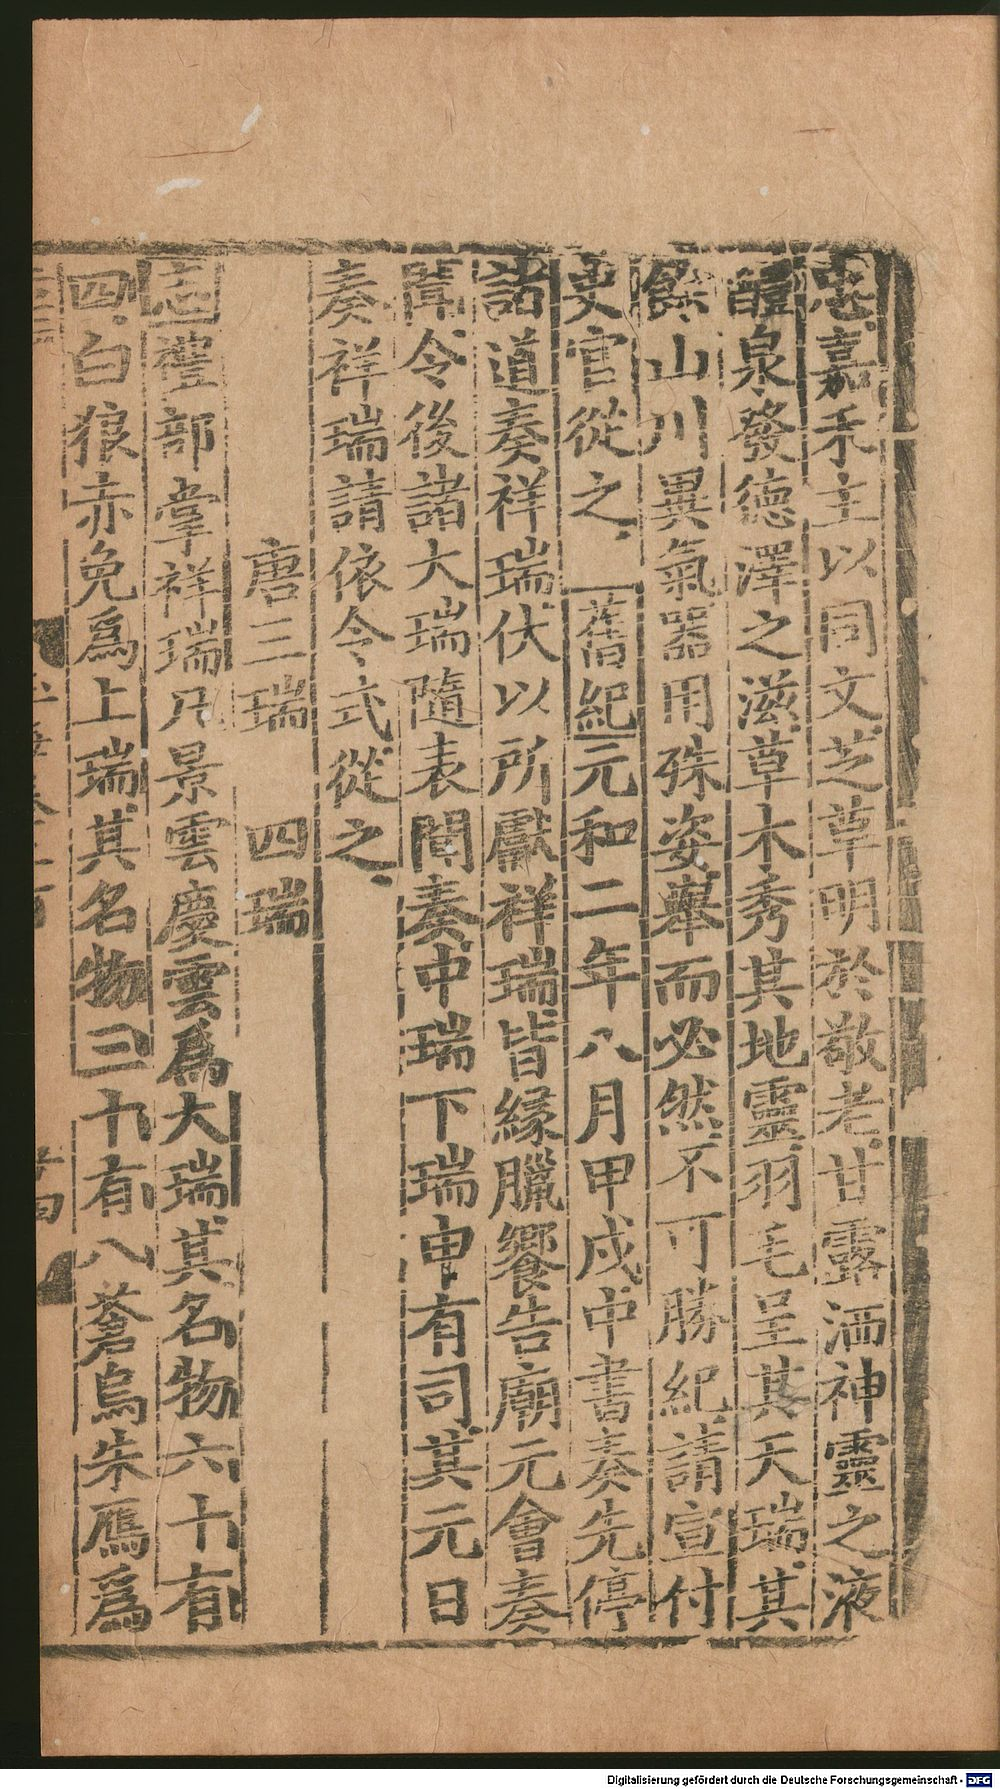 忠嘉禾主以同文芝草明於敬老甘露洒神靈之液
醴泉發德澤之滋草木秀其地靈羽毛呈其天瑞其
餘山川異氣器用殊姿舉而必然不可勝紀請宣付
吏官從之 舊紀元和二年八月甲戌中書奏先停
諸道奏祥瑞伏以所獻祥瑞皆緣臘饗告廟元會奏
聞今後諸大瑞隨表聞奏中瑞下瑞申有司其元日
奏祥瑞請依令式從之
唐三瑞 四瑞
志禮部掌祥瑞凡景雲慶雲爲大瑞其名物六十有
四白狼赤兔爲上瑞其名物三十有八蒼烏朱鴈爲
Digitalisierung gefördert durch die Deutsche Forschungsgemeinschaft - DFG